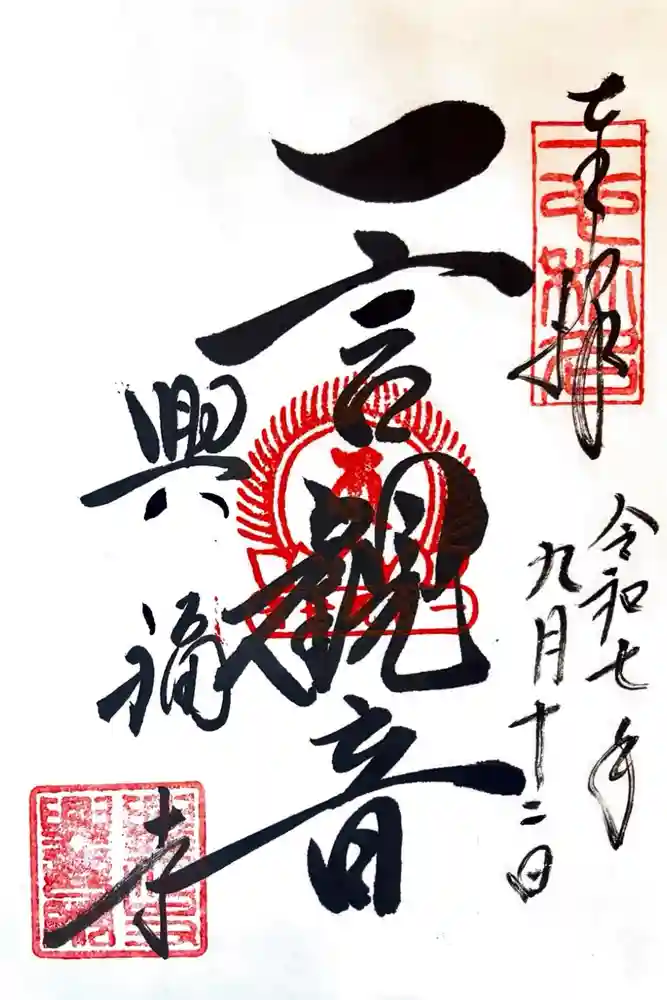 奉拝
令和七年
九月十二日
一言観音
興福寺